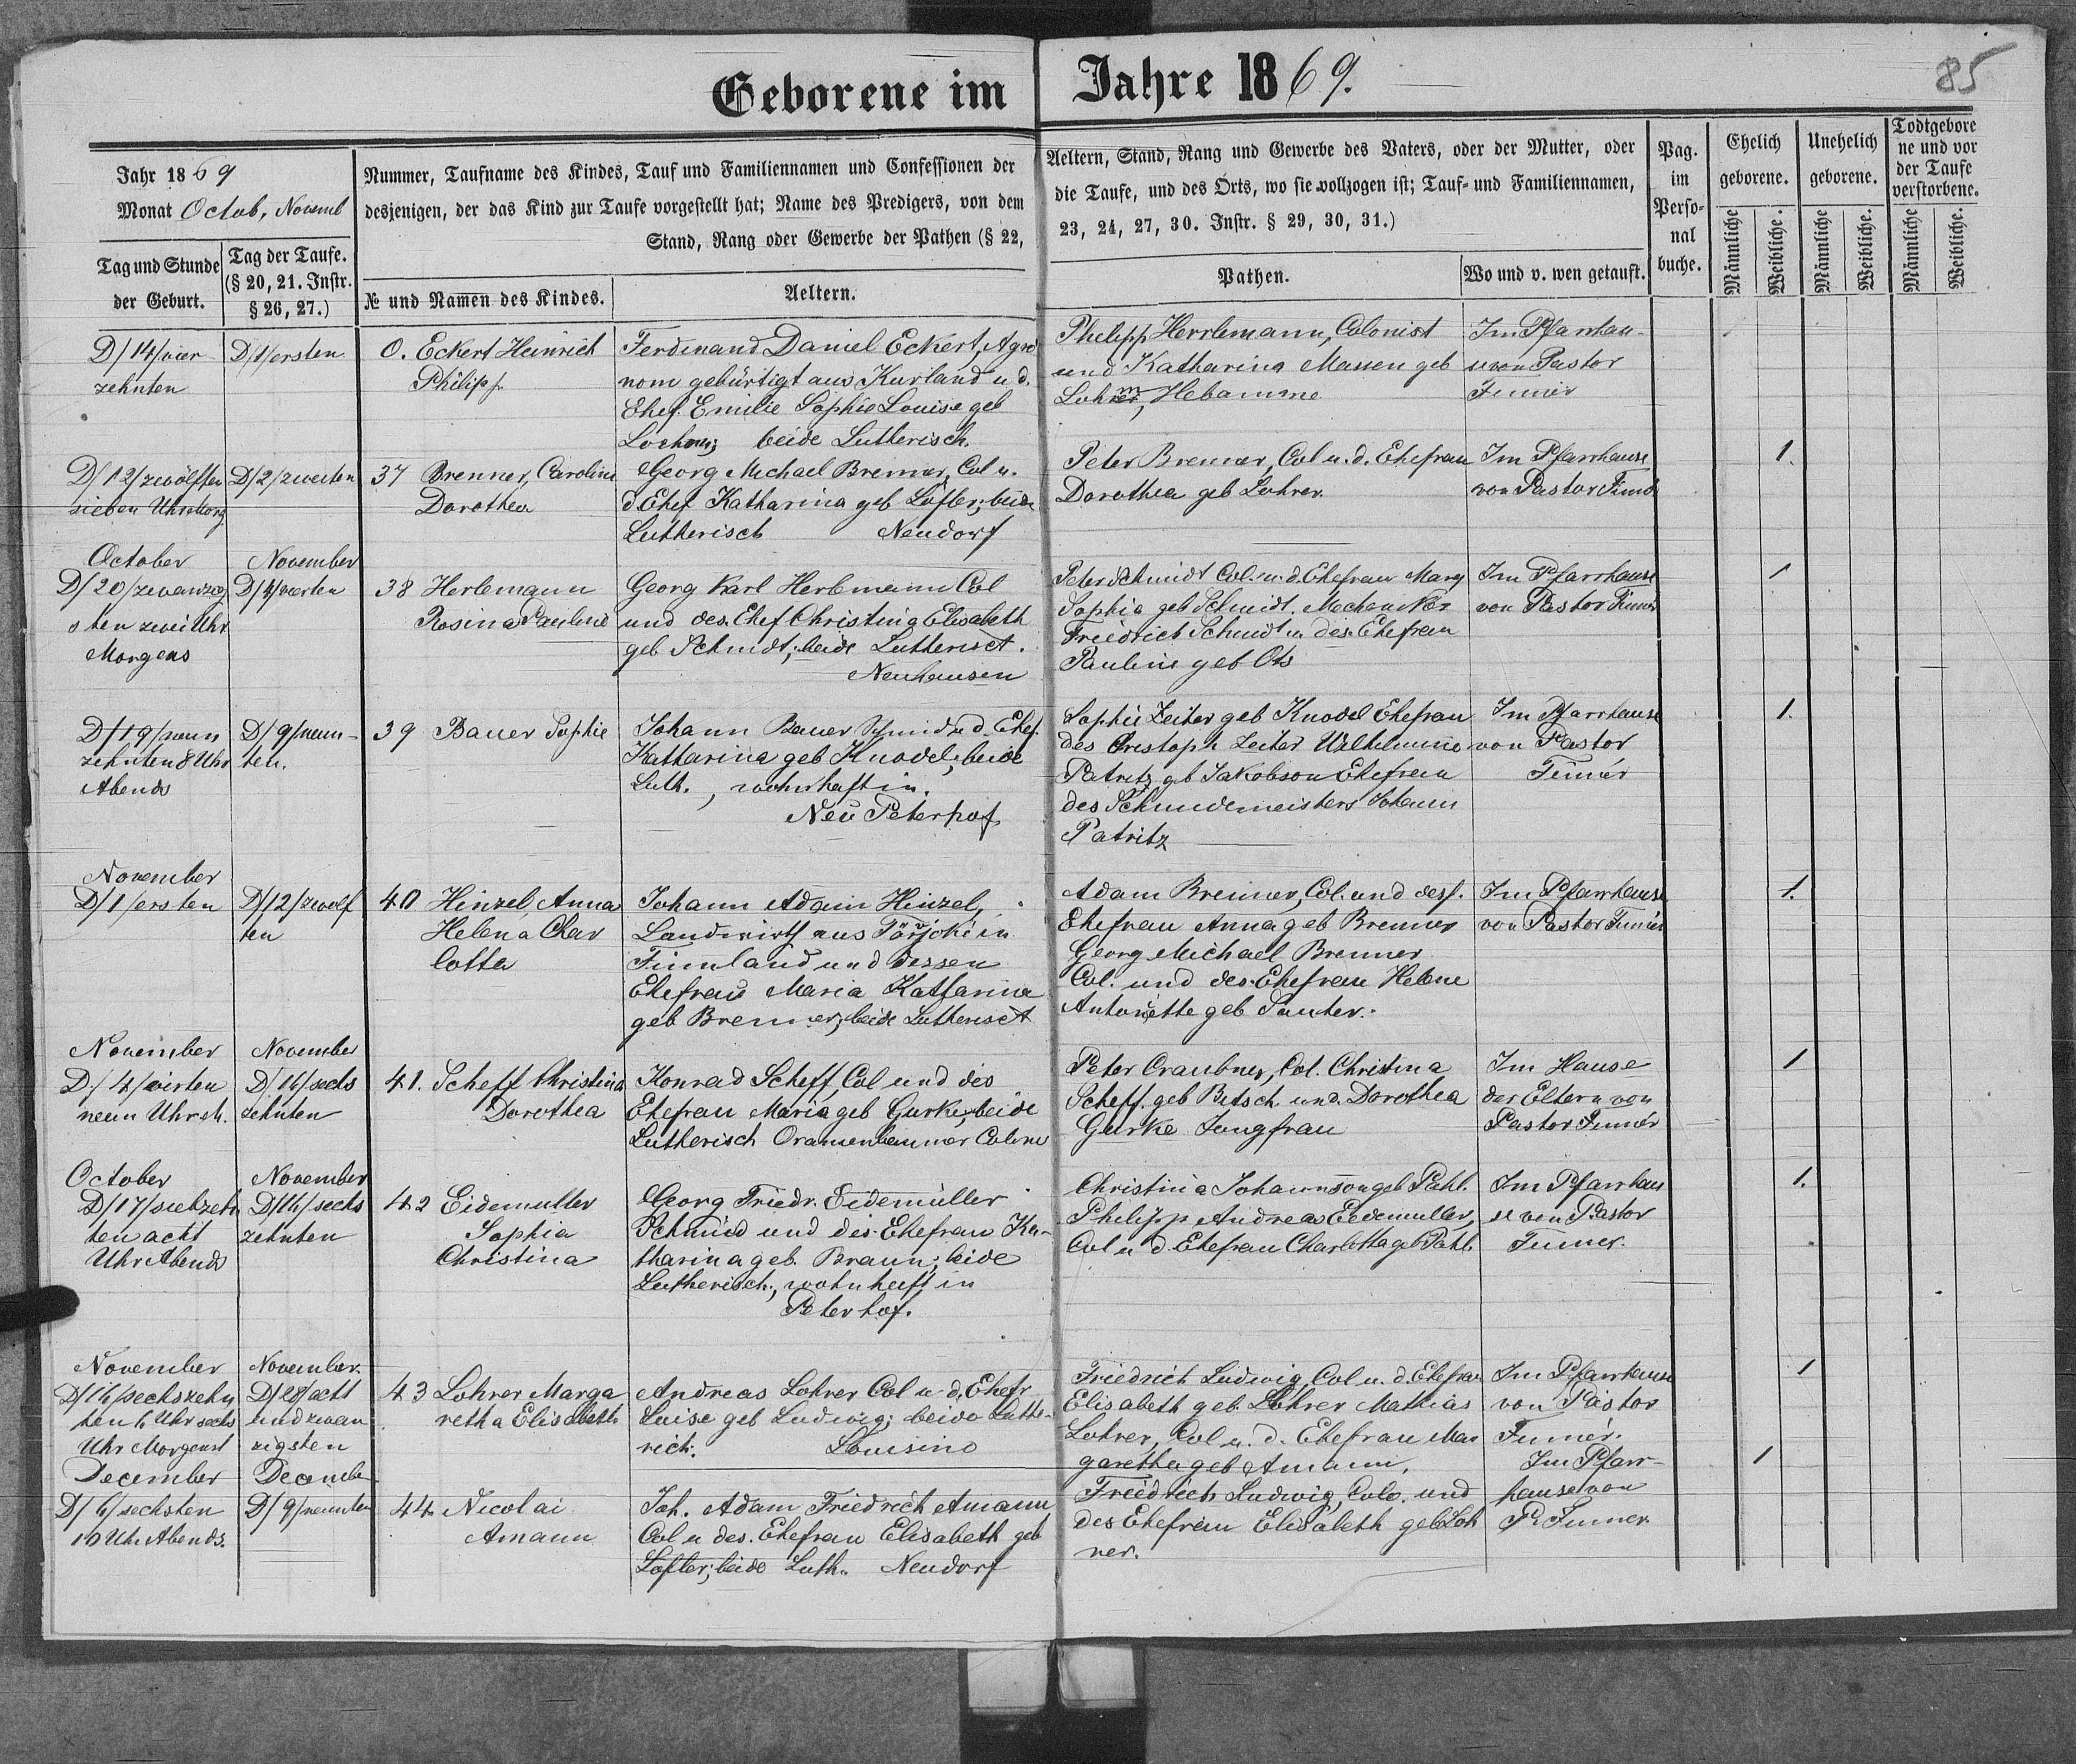 Geborene im Jahre 1869.
85
Jahr 1869
Monat Octob, Novemb
Tag und Stunde der Geburt.
Tag der Taufe. (§ 20, 21. Instr. § 26, 27.)
Nummer, Taufname des Kindes, Tauf und Familiennamen und Confessionen der
desjenigen, der das Kind zur Taufe vorgestellt hat; Name des Predigers, von dem
Stand, Rang oder Gewerbe der Pathen (§ 22,
№ und Namen des Kindes.
Aeltern.
Aeltern, Stand, Rang und Gewerbe des Vaters, oder der Mutter, oder
die Taufe, und des Orts, wo sie vollzogen ist; Tauf- und Familiennamen,
23, 24, 27, 30. Instr. § 29, 30, 31.)
Pathen.
Wo und v. wen getauft.
Pag. im Perso-nal buche.
Ehelich geborene.
Unehelich geborene.
Todtgebore ne und vor der Taufe verstorbene.
Männliche
Weibliche.
Männliche
Weibliche.
Männliche
Weibliche.
D/14/vier-
zehnten
D/1/ersten
0. Eckert Heinrich
Philipp
Ferdinand Daniel Eckert, Agro
nom gebürtigt aus Kurland u d.
Ehef. Emilie Sophie Louise geb
beide Lutherisch.
Philipp Herrlemann, Colonist
und Katharina Massen geb
Hebamme
Im Pfarrhau-
se von Pastor
D/12/zwölften
sieben Uhr Morg
D/2/zweiten
37 Brenner, Carolina
Dorothea
Georg Michael Brenner, Col u.
d Ehef Katharina geb Löfler; beide
Lutherisch Neudorf
Peter Brenner, Col u. d. Ehefrau
Dorothea geb Lohrer.
Im Pfarrhause
von Pastor
1.
October
D/20/zwanzig
sten zwei Uhr
Morgens
November
D/4/vierten
38 Herlemann
Rosina Pauline
Georg Karl Herlemann Col
und des. Ehef. Christina Elisabeth
geb Schmidt; beide Lutherisch.
Neuhausen
Peter Schmidt Col. u. d. Ehefrau Marg
Sophia geb Schmidt. Mechaniker
Friedrich Schmidt u. des. Ehefrau
Pauline geb Ots
Im Pfarrhause
von Pastor
1
D/19/neun
zehnten 8 Uhr
Abends
D/9/neun-
ten.
39 Bauer Sophie
Johann Bauer Schmid u d. Ehef.
Katharina geb Knodel; beide
Luth., wohnhaft in.
Neu Peterhof
Sophie Zeiter geb Knodel Ehefrau
des Cristoph Zeiter Wilhelmine
Patritz geb Jakobson Ehefrau
des Schmidemeisters Johann
Patritz
Im Pfarrhause
von Pastor
1.
November
D/1/ersten
D/12/zwölf
ten
40 Hinzel, Anna
Helena Char
lotta
Johann Adam Hinzel,
Landwirth aus
Finnland und dessen
Ehefrau Maria Katharina
geb Brenner; beide Lutherisch
Adam Brenner, Col. und dess.
Ehefrau Anna geb Brenner
Georg Michael Brenner
Col. und des. Ehefrau Helene
Antoniette geb Sauter.
Im Pfarrhause
von Pastor
1.
November
D/4/vierten
neun Uhr
November
D/16/sechs
zehnten
41. Scheff Christina
Dorothea
Konrad Scheff, Col und des
Ehefrau Maria geb Gurke; beide
Lutherisch Oranienbaumer Colonie
Peter Craubner, Col. Christina
Scheff. geb Betsch und Dorothea
Gurke Jungfrau
Im Hause
der Eltern von
Pastor
1
October
D/17/siebzehn
ten acht
Uhr Abends
November
D/16/sechs
zehnten
42 Eidemuller
Sophia
Christina
Georg Friedr. Eidemüller
Schmied und des. Ehefrau Ka-
tharina geb. Braun; beide
Lutherisch, wohnhaft in
Peterhof.
Christinia Johannson geb Pahl.
Philipp Andreas Eedemuller,
Col u d. Ehefrau Charlotta geb Pahl.
Im Pfarrhau
se von Pastor
1.
November
D/16/sechszehn
ten 6 Uhr sechs
Uhr Morgens
November.
D/28/acht
und zwan
zigsten
43 Lohrer Marga
retha Elisabeth
Andreas Lohrer Col u. d. Ehefr
Luise geb Ludwig; beide Luthe-
risch. Louisino
Friedrich Ludwig, Col u. d. Ehefrau
Elisabeth geb. Lohrer Mathias
Lohrer, Col u. d. Ehefrau Mar
garetha geb Amann.
Im Pfarrhause
von Pastor
1
December
D/6/sechsten
10 Uhr Abends.
Decembe
D/9/neunten
44 Nicolai
Amann
Joh. Adam Friedrich Amann
Col u des. Ehefrau Elisabeth geb
Lofler; beide Luth. Neudorf
Friedrich Ludwig, Colo. und
des Ehefrau Elisabeth geb Loh
rer.
Im Pfarr-
hause von
1